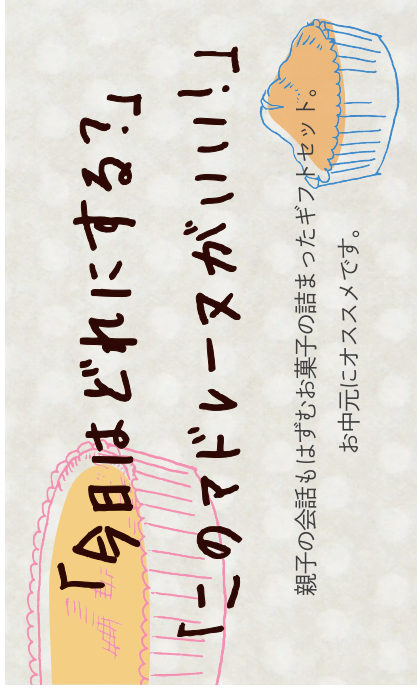 「今日はどれにする?」
「このマドレーヌがいい!」
親子の会話もはずむお菓子の詰まったギフトセット。
お中元にオススメです。